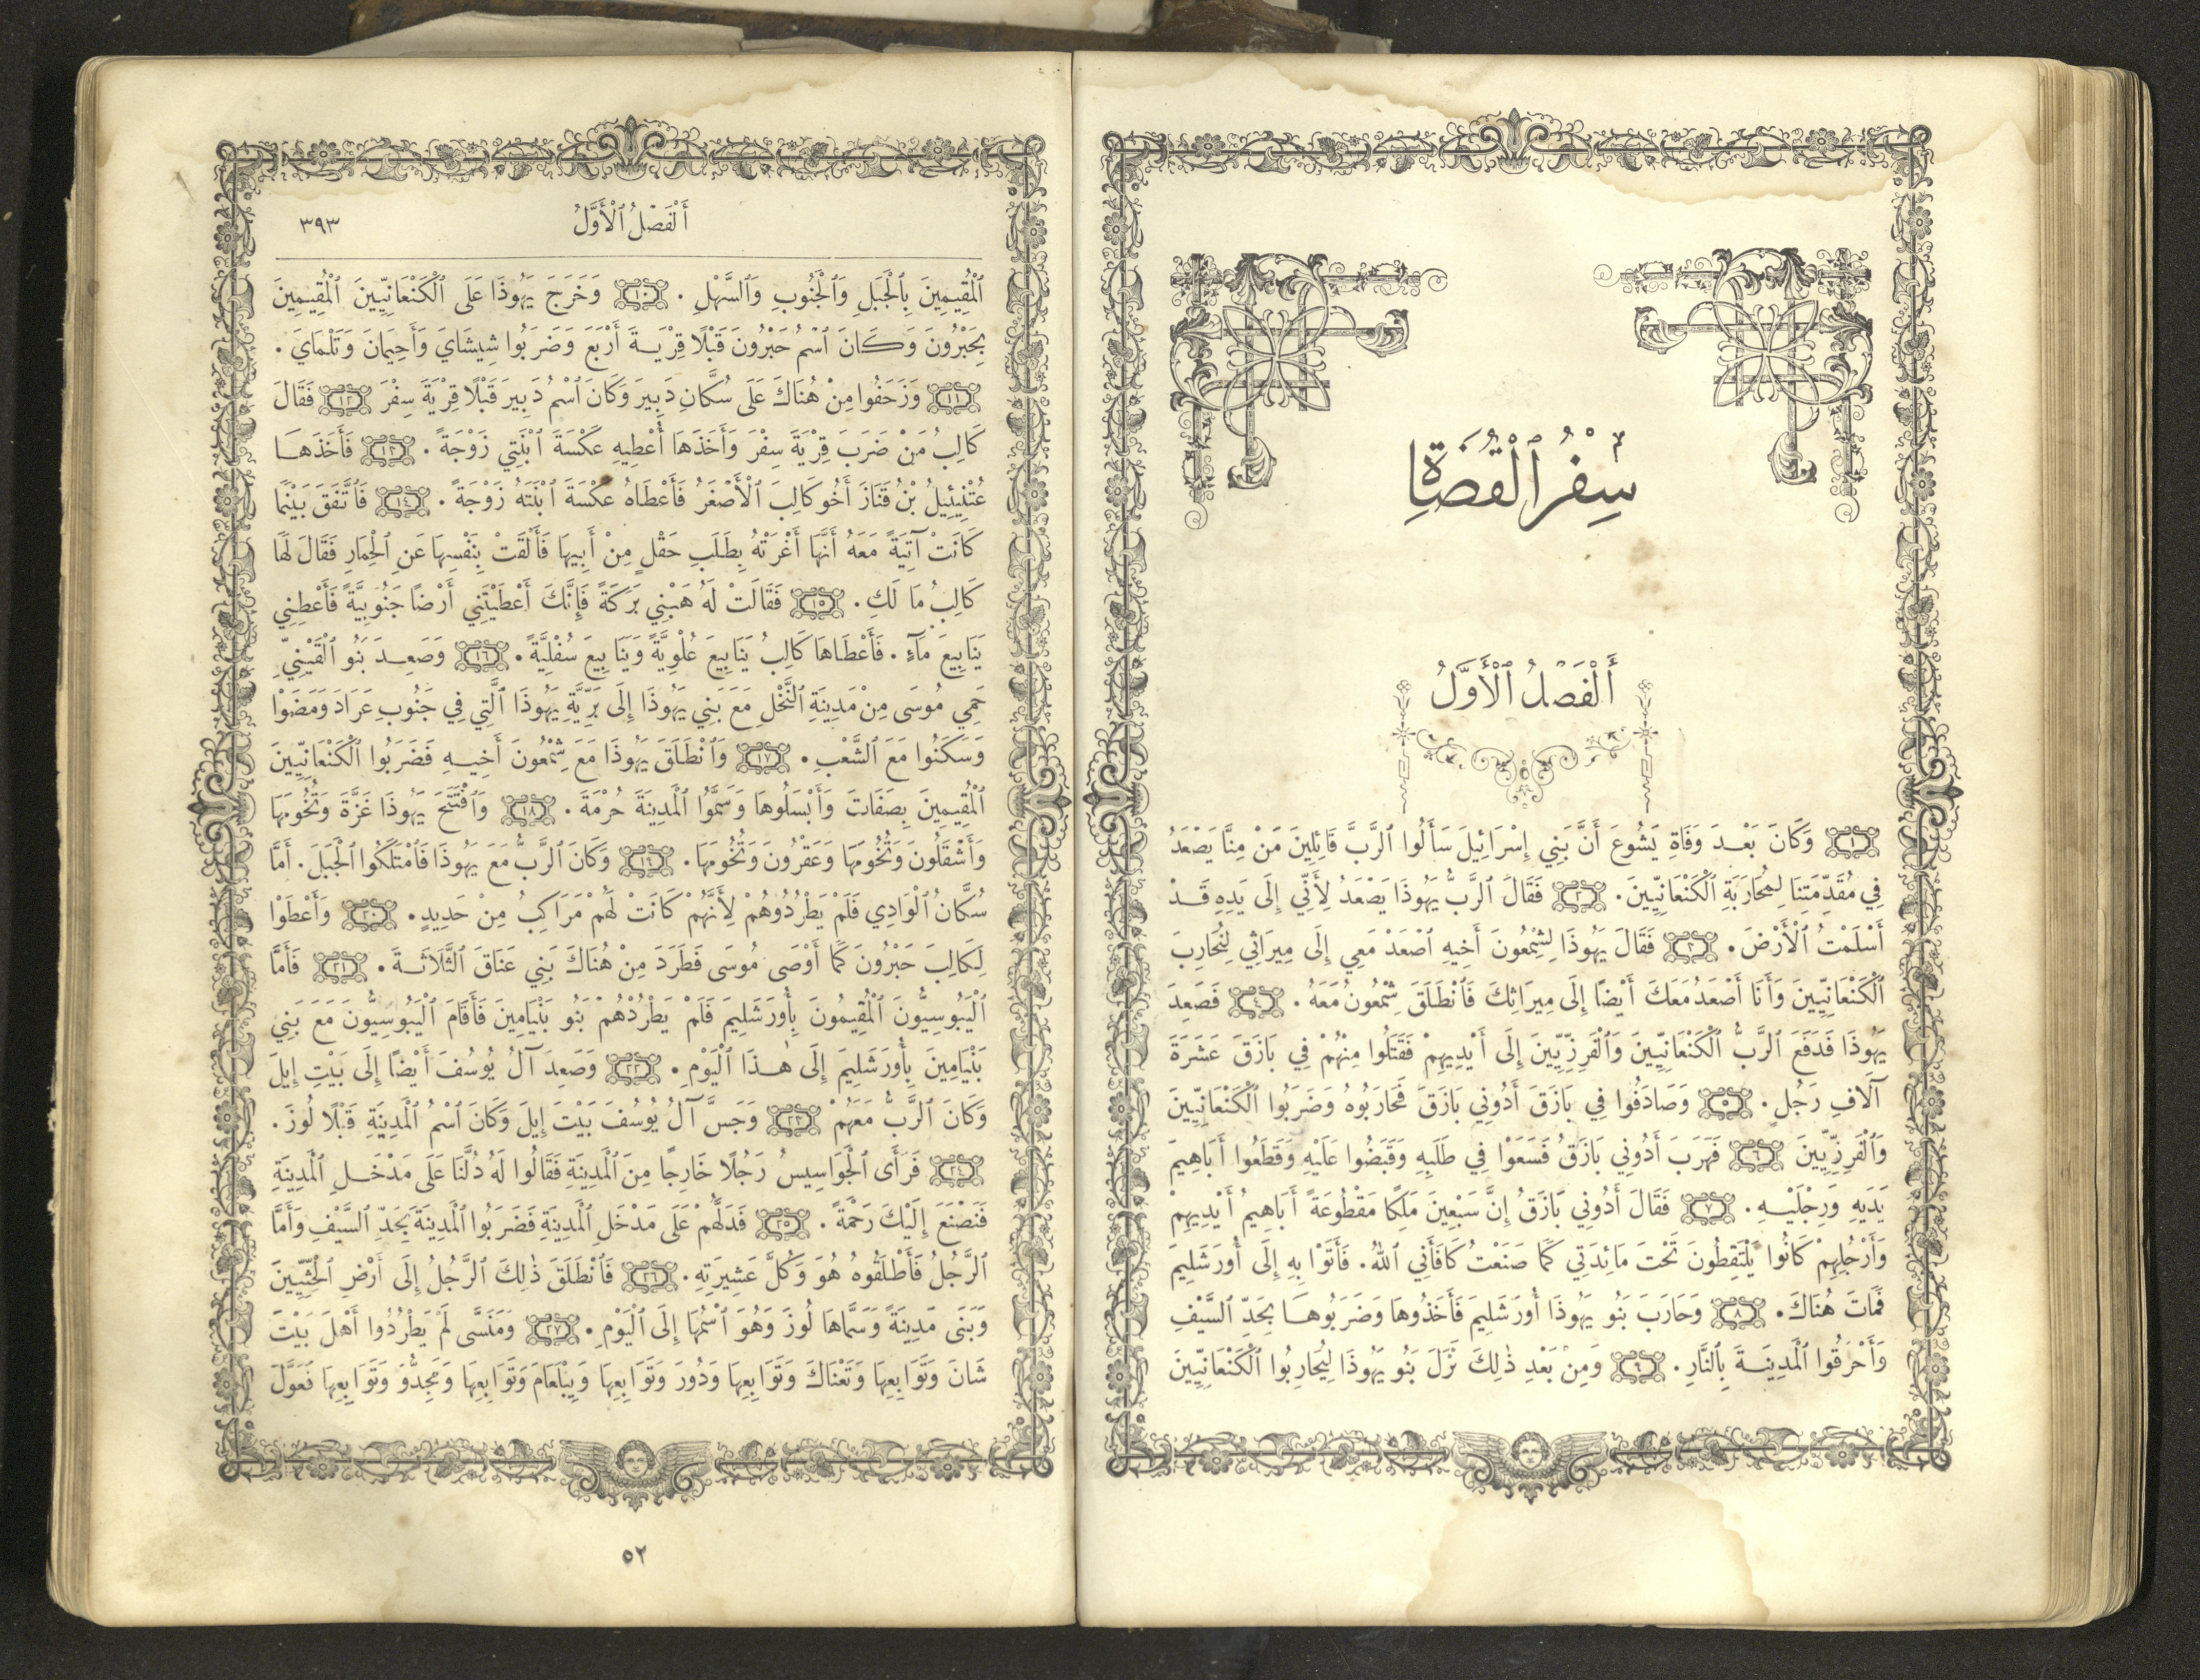 سِفْرُ ٱلْقُضَاةِ
أَلْفَصْلُ ٱلْأَوَّلُ
١ وَكَانَ بَعْدَ وَفَاةِ يَشُوعَ أَنَّ بَنِي إِسْرَائِيلَ سَأَلُوا ٱلرَّبَّ قَائِلِينَ مَنْ مِنَّا يَصْعَدُ
فِي مُقَدِّمَتِنَا لِمُحَارَبَةِ ٱلْكَنْعَانِيِّينَ. ٢ فَقَالَ ٱلرَّبُّ يَهُوذَا يَصْعَدُ لِأَنِّي إِلَى يَدِهِ قَدْ
أَسْلَمْتُ ٱلْأَرْضَ. ٣ فَقَالَ يَهُوذَا لِشِمْعُونَ أَخِيهِ ٱصْعَدْ مَعِي إِلَى مِيرَاثِي لِنُحَارِبَ
ٱلْكَنْعَانِيِّينَ وَأَنَا أَصْعَدُ مَعَكَ أَيْضًا إِلَى مِيرَاثِكَ فَٱنْطَلَقَ شِمْعُونُ مَعَهُ. ٤ فَصَعِدَ
يَهُوذَا فَدَفَعَ ٱلرَّبُّ ٱلْكَنْعَانِيِّينَ وَٱلْفَرِزِّيِّينَ إِلَى أَيْدِيهِمْ فَقَتَلُوا مِنْهُمْ فِي بَازَقَ عَشَرَةَ
آلَافِ رَجُلٍ. ٥ وَصَادَفُوا فِي بَازَقَ أَدُونِي بَازَقَ فَحَارَبُوهُ وَضَرَبُوا ٱلْكَنْعَانِيِّينَ
وَٱلْفَرِزِّيِّينَ ٦ فَهَرَبَ أَدُونِي بَازَقُ فَسَعَوْا فِي طَلَبِهِ وَقَبَضُوا عَلَيْهِ وَقَطَعُوا أَبَاهِيمَ
يَدَيْهِ وَرِجْلَيْهِ. ٧ فَقَالَ أَدُونِي بَازَقُ إِنَّ سَبْعِينَ مَلِكًا مَقْطُوعَةً أَبَاهِيمُ أَيْدِيهِمْ
وَأَرْجُلِهِمْ كَانُوا يَلْتَقِطُونَ تَحْتَ مَائِدَتِي كَمَا صَنَعْتُ كَافَأَنِي ٱللهُ. فَأَتَوْا بِهِ إِلَى أُورَشَلِيمَ
فَمَاتَ هُنَاكَ. ٨ وَحَارَبَ بَنُو يَهُوذَا أُورَشَلِيمَ فَأَخَذُوهَا وَضَرَبُوهَا بِحَدِّ ٱلسَّيْفِ
وَأَحْرَقُوا ٱلْمَدِينَةَ بِٱلنَّارِ. ٩ وَمِنْ بَعْدِ ذٰلِكَ نَزَلَ بَنُو يَهُوذَا لِيُحَارِبُوا ٱلْكَنْعَانِيِّينَ
أَلْفَصْلُ ٱلْأَوَّلُ ٣٩٣
ٱلْمُقِيمِينَ بِٱلْجَبَلِ وَٱلْجَنُوبِ وَٱلسَّهْلِ. ١٠ وَخَرَجَ يَهُوذَا عَلَى ٱلْكَنْعَانِيِّينَ ٱلْمُقِيمِينَ
بِحَبْرُونَ وَكَانَ ٱسْمُ حَبْرُونَ قَبْلًا قِرْيَةَ أَرْبَعَ وَضَرَبُوا شِيشَايَ وَأَحِيمَانَ وَتَلْمَايَ.
١١ وَزَحَفُوا مِنْ هُنَاكَ عَلَى سُكَّانِ دَبِيرَ وَكَانَ ٱسْمُ دَبِيرَ قَبْلًا قِرْيَةَ سِفْرَ ١٢ فَقَالَ
كَالِبُ مَنْ ضَرَبَ قِرْيَةَ سِفْرَ وَأَخَذَهَا أُعْطِيهِ عَكْسَةَ ٱبْنَتِي زَوْجَةً. ١٣ فَأَخَذَهَا
عُتْنِيئِيلُ بْنُ قَنَازَ أَخُو كَالِبَ ٱلْأَصْغَرُ فَأَعْطَاهُ عَكْسَةَ ٱبْنَتَهُ زَوْجَةً. ١٤ فَٱتَّفَقَ بَيْنَمَا
كَانَتْ آتِيَةً مَعَهُ أَنَّهَا أَغْرَتْهُ بِطَلَبِ حَقْلٍ مِنْ أَبِيهَا فَأَلْقَتْ بِنَفْسِهَا عَنِ ٱلْحِمَارِ فَقَالَ لَهَا
كَالِبُ مَا لَكِ. ١٥ فَقَالَتْ لَهُ هَبْنِي بَرَكَةً فَإِنَّكَ أَعْطَيْتَنِي أَرْضًا جَنُوبِيَّةً فَأَعْطِنِي
يَنَابِيعَ مَاءٍ. فَأَعْطَاهَا كَالِبُ يَنَابِيعَ عُلْوِيَّةً وَيَنَابِيعَ سُفْلِيَّةً. ١٦ وَصَعِدَ بَنُو ٱلْقَيْنِيِّ
حَمِي مُوسَى مِنْ مَدِينَةِ ٱلنَّخْلِ مَعَ بَنِي يَهُوذَا إِلَى بَرِّيَّةِ يَهُوذَا ٱلَّتِي فِي جَنُوبِ عَرَادَ وَمَضَوْا
وَسَكَنُوا مَعَ ٱلشَّعْبِ. ١٧ وَٱنْطَلَقَ يَهُوذَا مَعَ شِمْعُونَ أَخِيهِ فَضَرَبُوا ٱلْكَنْعَانِيِّينَ
ٱلْمُقِيمِينَ بِصَفَاتَ وَأَبْسَلُوهَا وَسَمَّوُا ٱلْمَدِينَةَ حُرْمَةَ. ١٨ وَٱفْتَتَحَ يَهُوذَا غَزَّةَ وَتُخُومَهَا
وَأَشْقَلُونَ وَتُخُومَهَا وَعَقْرُونَ وَتُخُومَهَا. ١٩ وَكَانَ ٱلرَّبُّ مَعَ يَهُوذَا فَٱمْتَلَكُوا ٱلْجَبَلَ. أَمَّا
سُكَّانُ ٱلْوَادِي فَلَمْ يَطْرُدُوهُمْ لِأَنَّهُمْ كَانَتْ لَهُمْ مَرَاكِبُ مِنْ حَدِيدٍ. ٢٠ وَأَعْطَوْا
لِكَالِبَ حَبْرُونَ كَمَا أَوْصَى مُوسَى فَطَرَدَ مِنْ هُنَاكَ بَنِي عَنَاقَ ٱلثَّلَاثَةَ. ٢١ فَأَمَّا
ٱلْيَبُوسِيُّونَ ٱلْمُقِيمُونَ بِأُورَشَلِيمَ فَلَمْ يَطْرُدْهُمْ بَنُو بَنْيَامِينَ فَأَقَامَ ٱلْيَبُوسِيُّونَ مَعَ بَنِي
بَنْيَامِينَ بِأُورَشَلِيمَ إِلَى هٰذَا ٱلْيَوْمِ. ٢٢ وَصَعِدَ آلُ يُوسُفَ أَيْضًا إِلَى بَيْتِ إِيلَ
وَكَانَ ٱلرَّبُّ مَعَهُمْ ٢٣ وَجَسَّ آلُ يُوسُفَ بَيْتَ إِيلَ وَكَانَ ٱسْمُ ٱلْمَدِينَةِ قَبْلًا لُوزَ.
٢٤ فَرَأَى ٱلْجَوَاسِيسُ رَجُلًا خَارِجًا مِنَ ٱلْمَدِينَةِ فَقَالُوا لَهُ دُلَّنَا عَلَى مَدْخَلِ ٱلْمَدِينَةِ
فَنَصْنَعَ إِلَيْكَ رَحْمَةً. ٢٥ فَدَلَّهُمْ عَلَى مَدْخَلِ ٱلْمَدِينَةِ فَضَرَبُوا ٱلْمَدِينَةَ بِحَدِّ ٱلسَّيْفِ وَأَمَّا
ٱلرَّجُلُ فَأَطْلَقُوهُ هُوَ وَكُلَّ عَشِيرَتِهِ. ٢٦ فَٱنْطَلَقَ ذٰلِكَ ٱلرَّجُلُ إِلَى أَرْضِ ٱلْحِثِّيِّينَ
وَبَنَى مَدِينَةً وَسَمَّاهَا لُوزَ وَهُوَ ٱسْمُهَا إِلَى ٱلْيَوْمِ. ٢٧ وَمَنَسَّى لَمْ يَطْرُدُوا أَهْلَ بَيْتَ
شَانَ وَتَوَابِعِهَا وَتَعْنَاكَ وَتَوَابِعِهَا وَدُورَ وَتَوَابِعِهَا وَيِبْلَعَامَ وَتَوَابِعِهَا وَمَجِدُّوَ وَتَوَابِعِهَا فَعَوَّلَ
٥٢